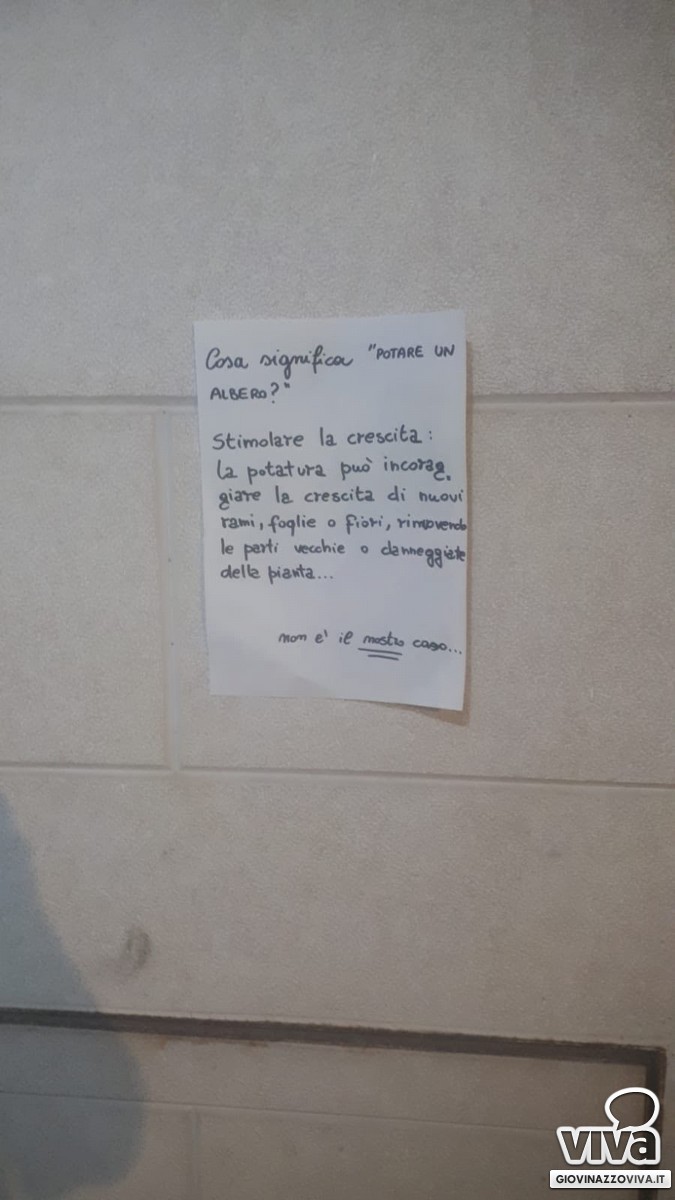 Cosa significa "POTARE UN
ALBERO?"
Stimolare la crescita:
la potatura può incorag-
giare la crescita di nuovi
rami, foglie o fiori, rimovendo
le parti vecchie o danneggiate
della pianta...
non e' il nostro caso...
viva
GIOVINAZZOVIVA.IT